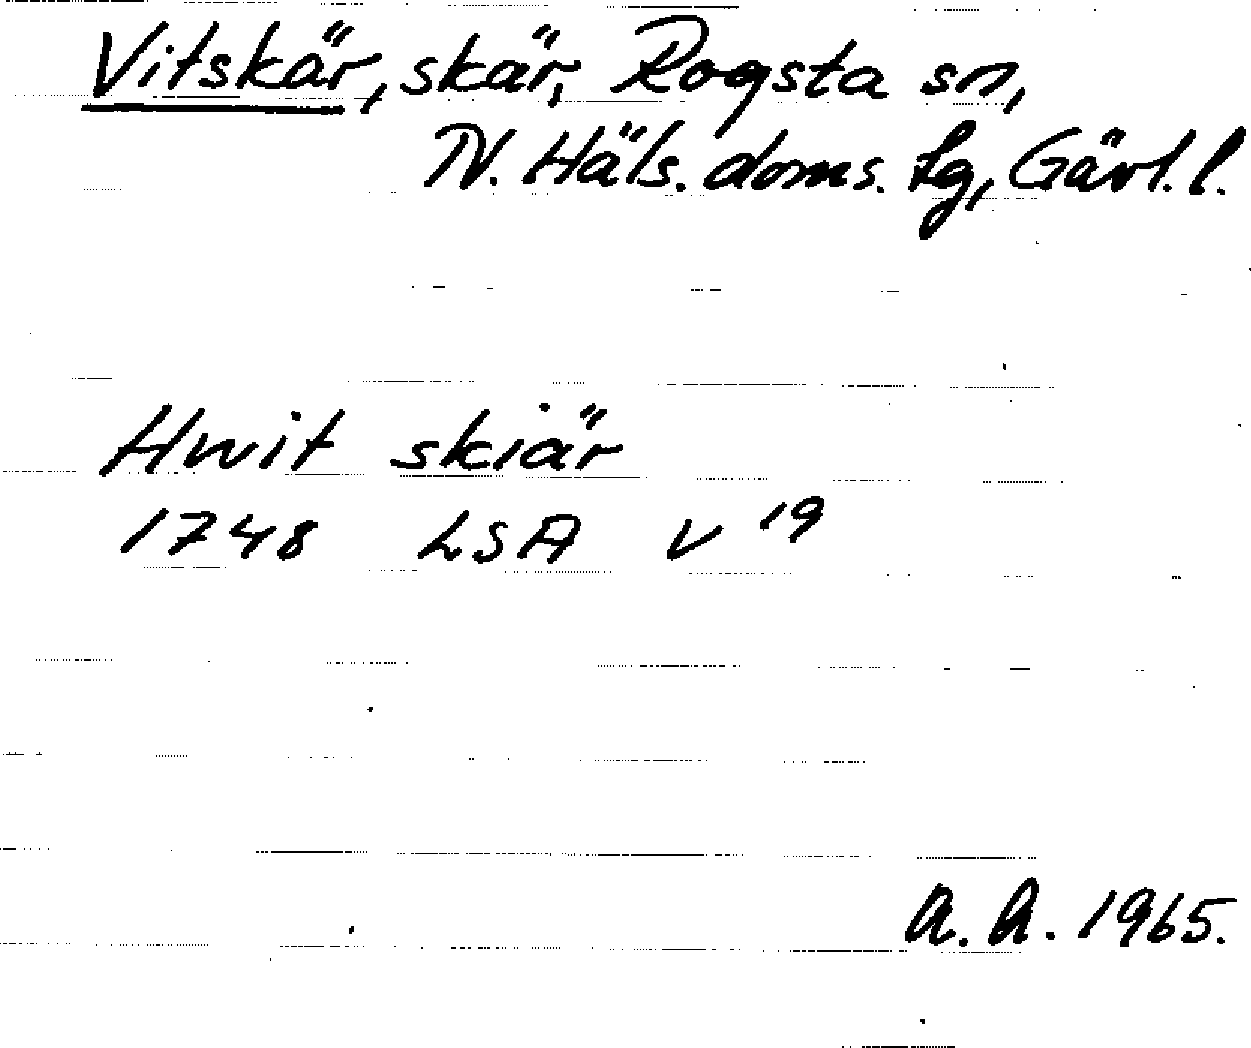 Vitskär, skär, Rogsta sn,
N. Häls. doms. tg, Gävl. l.
Hwit skiär
1748 LSA V 19
A. A. 1965.